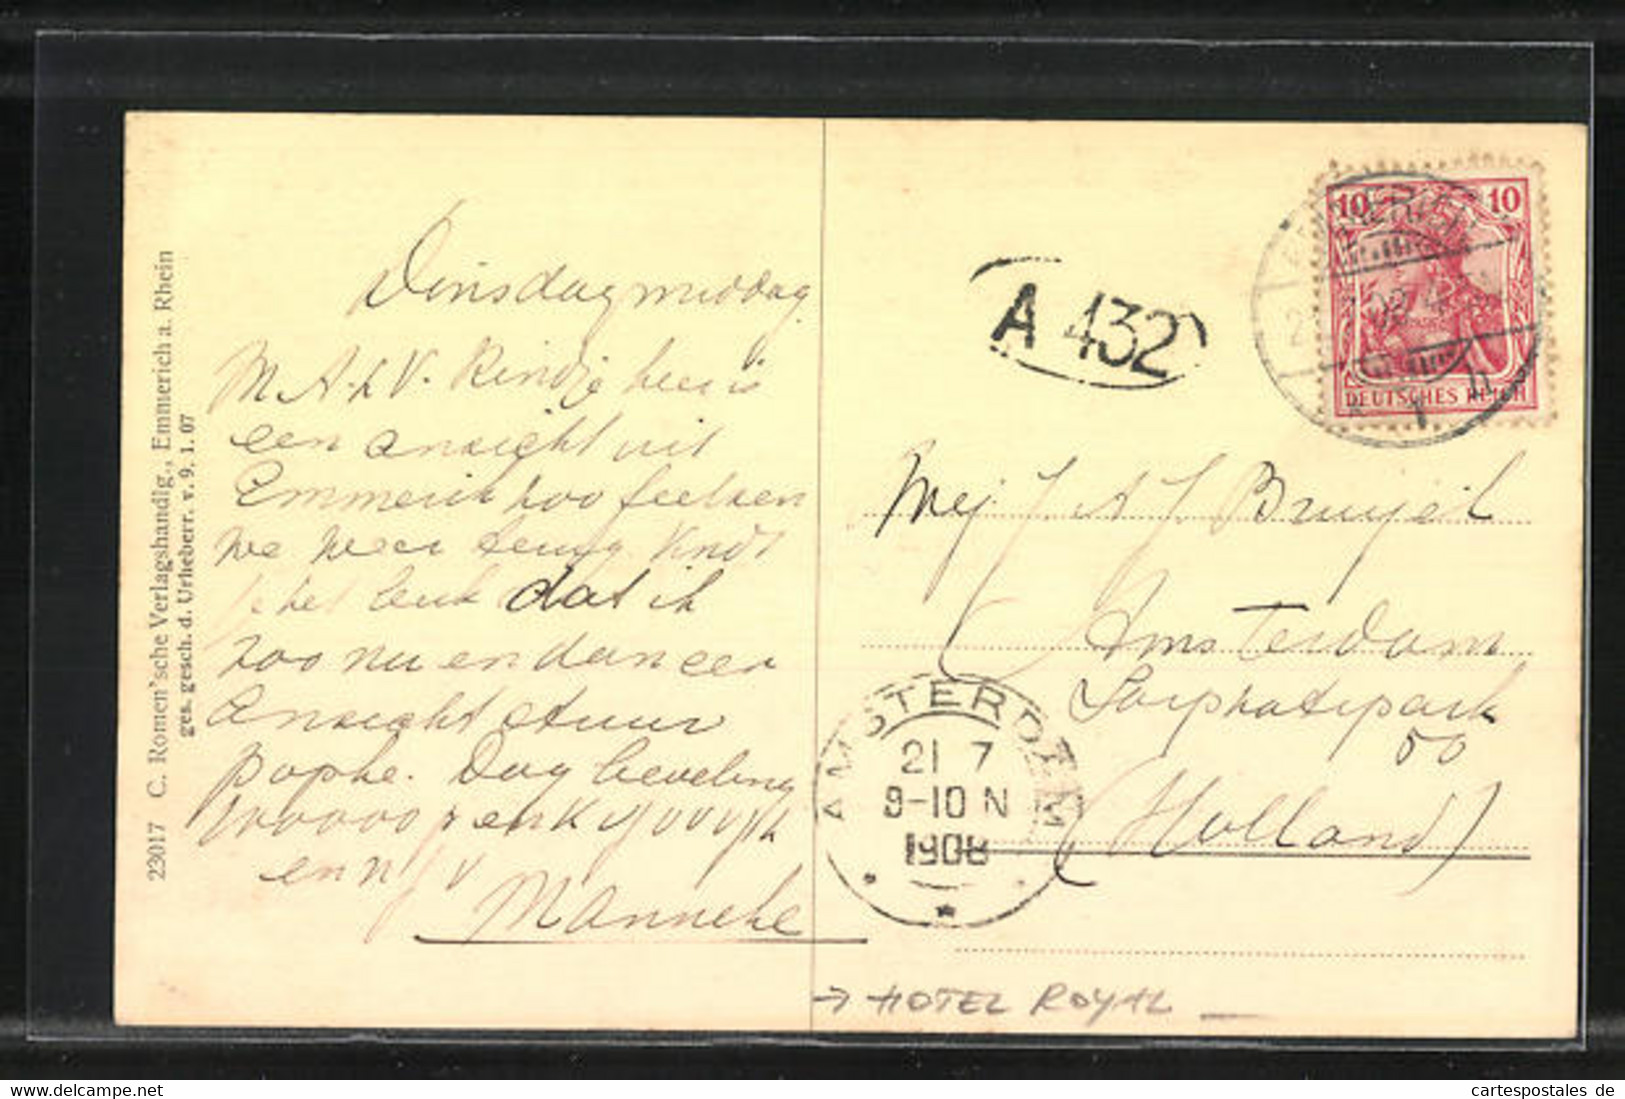 C. Romen'sche Verlagshandlg., Emmerich a. Rhein
ges. gesch. d. Urheberr. v. 9. 1. 07
23017
Dinsdagmiddag
M. A. L. V. Kindje hier is
een ansicht uit
Emmerik zoo
we weer terug. Vindt
je het leuk dat ik
zoo nu en dan een
Ansicht stuur
pophe. Dag lieveling
en
Manneke
10 10
DEUTSCHES REICH
EMMERICH
A 432
Mej J. A. J. Bruijel
Amsterdam
Sarphatipark
50
(Holland)
AMSTERDAM
21 7
9-10 N
1908
→ HOTEL ROYAL
cartespostales de